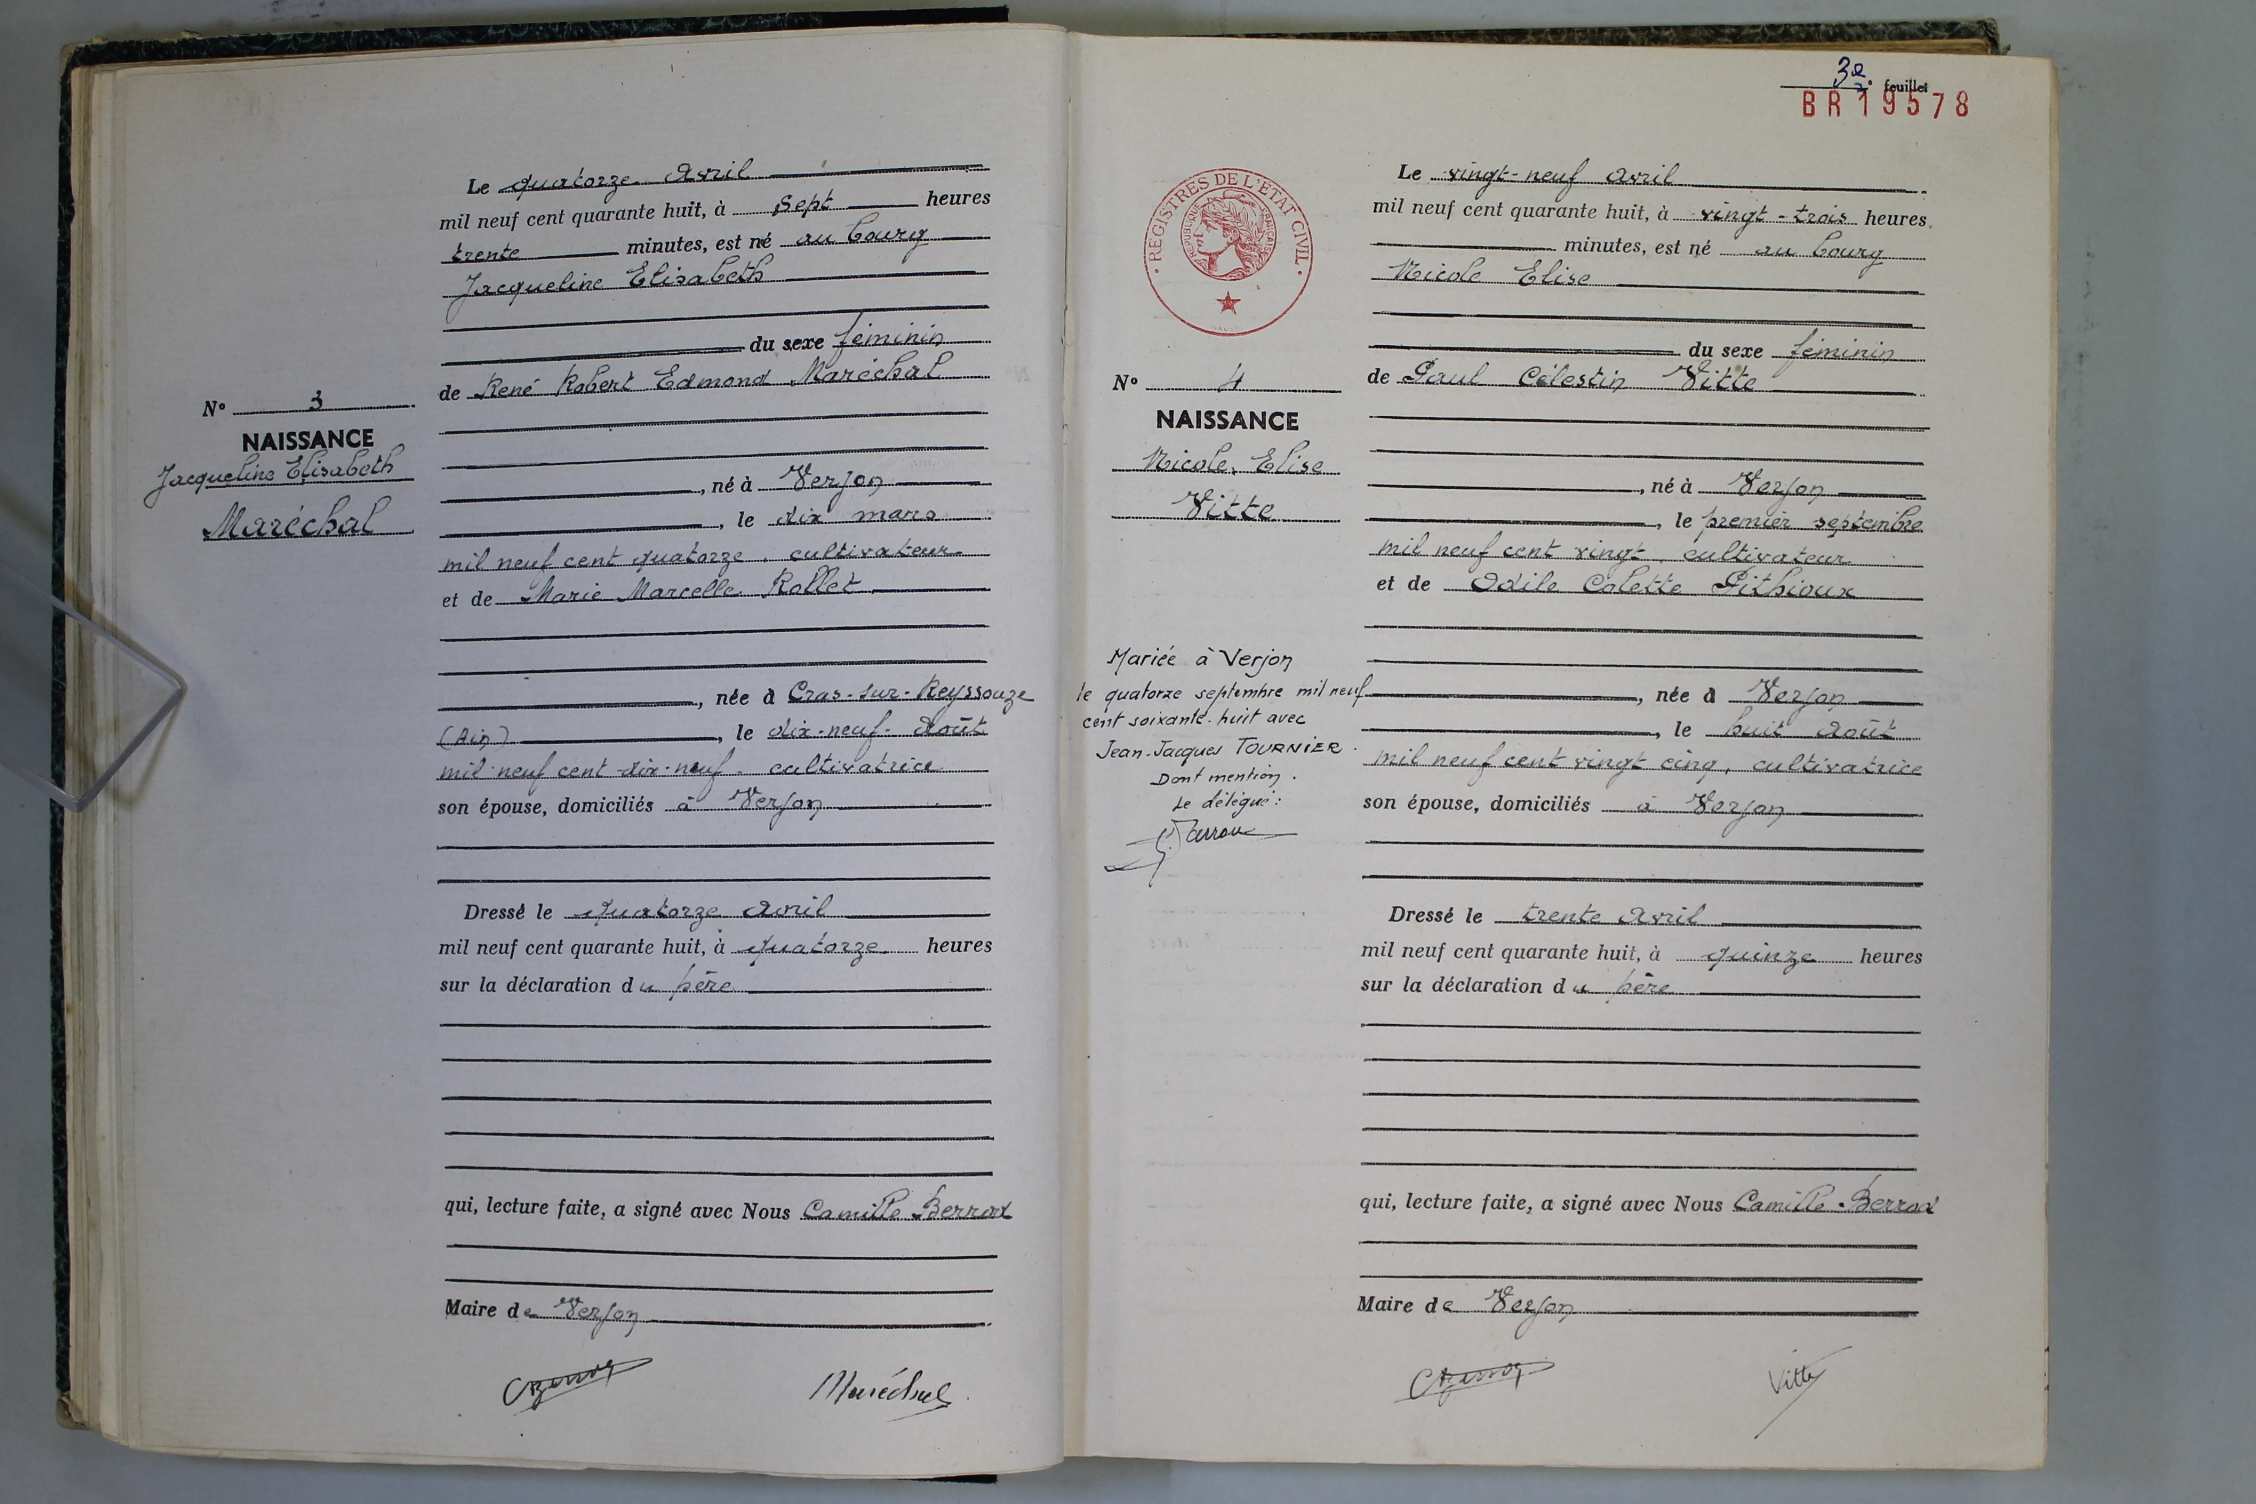 Le quatorze Avril
mil neuf cent quarante huit, à sept heures
trente minutes, est né au bourg
Jacqueline Elisabeth
du sexe féminin
de René Robert Edmond Maréchal
N° 3
NAISSANCE
Jacqueline Elisabeth
Maréchal
, né à Verjon
, le dix mars
mil neuf cent quatorze, cultivateur
et de Marie Marcelle Rollet
, née à Cras-sur-Reyssouze
(Ain) , le dix-neuf Août
mil neuf cent dix-neuf. cultivatrice
son épouse, domiciliés à Verjon
Dressé le quatorze Avril
mil neuf cent quarante huit, à quatorze heures
sur la déclaration du père
qui, lecture faite, a signé avec Nous Camille Berrod
Maire de Verjon
Maréchal
feuillet
BR19578
REGISTRES DE L'ETAT CIVIL
REPUBLIQUE FRANÇAISE
Le vingt-neuf Avril
mil neuf cent quarante huit, à vingt-trois heures
minutes, est né au bourg
Nicole Elise
du sexe féminin
de Paul Célestin Vitte
N° 4
NAISSANCE
Nicole, Elise
Vitte
, né à Verjon
, le premier septembre
mil neuf cent vingt, cultivateur
et de Odile Colette Pithioux
Mariée à Verjon
le quatorze septembre mil neuf
cent soixante-huit avec
Jean-Jacques TOURNIER.
Dont mention.
Le délégué:
, née à Verjon
, le huit Août
mil neuf cent vingt cinq, cultivatrice
son épouse, domiciliés à Verjon
Dressé le trente Avril
mil neuf cent quarante huit, à quinze heures
sur la déclaration du père
qui, lecture faite, a signé avec Nous Camille Berrod
Maire de Verjon
Vitte